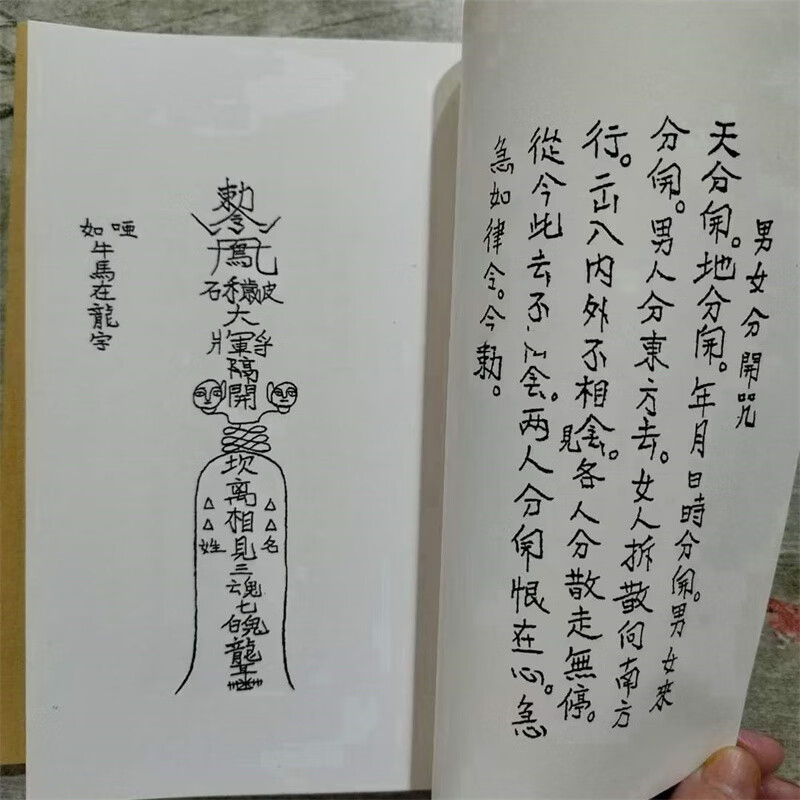 男女分開咒
天分開。地分開。年月日時分開。男女來
分開。男人分東方去。女人拆散向南方
行。出入內外不相會。見各人分散走無停。
從今此去不会。两人分開恨在心。急
急如律令。今勅。
勅令
鳳
石 穢 皮
大
將軍
隔開
坎离相見三魂七魄聾
△△姓
△△名
啞
如牛馬在龍字